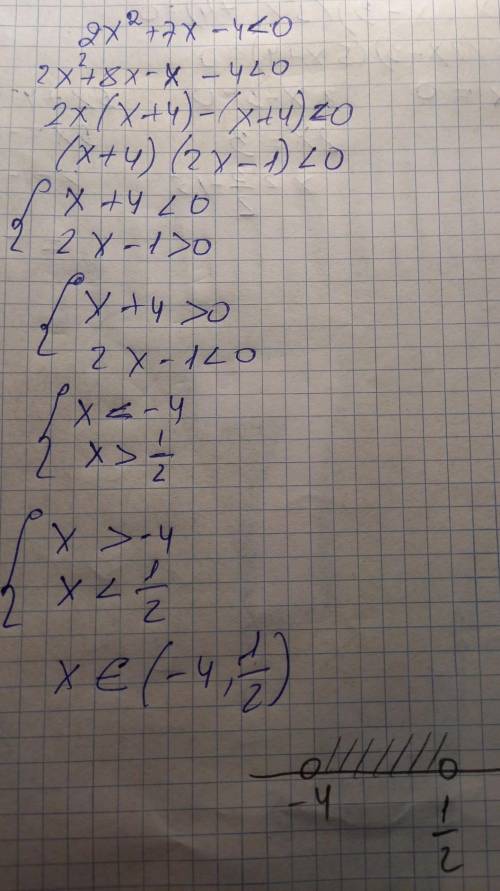 2x² + 7x - 4 < 0
2x² + 8x - x - 4 < 0
2x(x+4) - (x+4) < 0
(x+4)(2x-1) < 0
{ x + 4 < 0
2x - 1 > 0
{ x + 4 > 0
2x - 1 < 0
{ x < -4
x > 1/2
{ x > -4
x < 1/2
x ∈ (-4, 1/2)
-4 1/2